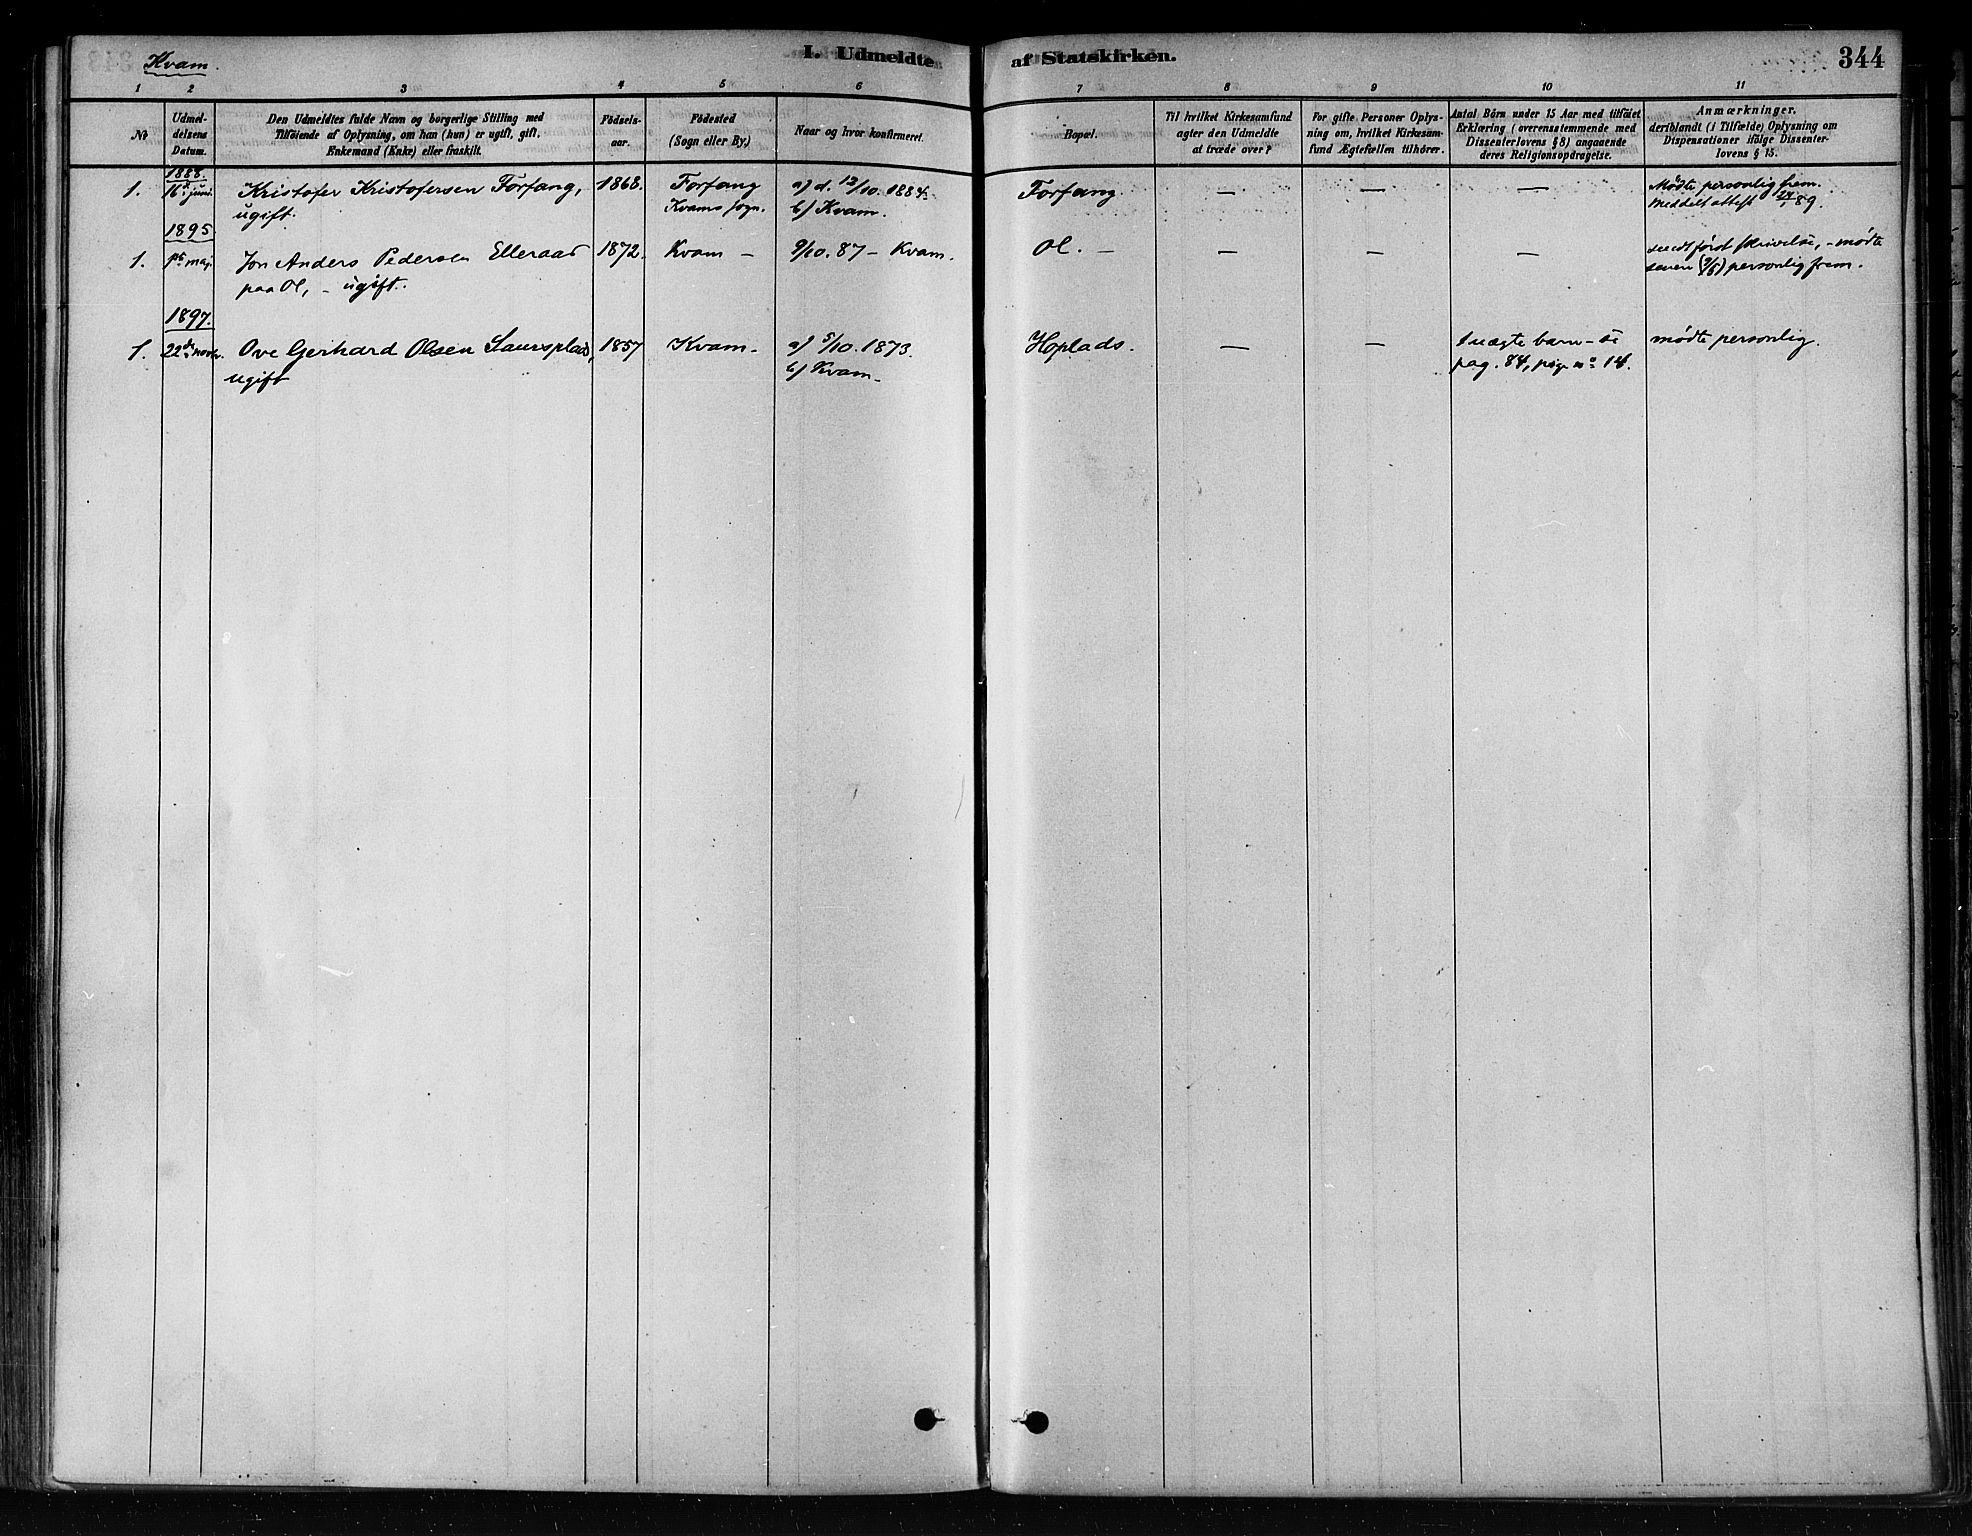 Kvam.
I. Udmeldte af Statskirken.
344
1 2 3 4 5 6 7 8 9 10 11
No
Udmel-
delsens
Datum.
Den Udmeldtes fulde Navn og borgerlige Stilling med
Tilföiende af Oplysning, om han (hun) er ugift, gift,
Enkemand (Enke) eller fraskilt.
Födsels-
aar.
Födested
(Sogn eller By.)
Naar og hvor konfirmeret.
Bopæl.
Til hvilket Kirkesamfund
agter den Udmeldte
at træde over?
For gifte Personer Oplys-
ning om, hvilket Kirkesam-
fund Ægtefællen tilhörer.
Antal Börn under 15 Aar med tilföiet
Erklæring (overensstemmende med
Dissenterlovens § 8) angaaende
deres Religionsopdragelse.
Anmærkninger,
deriblandt (i Tilfælde) Oplysning om
Dispensationer ifölge Dissenter-
lovens § 15.
1888.
1. 16d juni. Kristofer Kristofersen Forfang, 1868. Forfang a) d. 12/10. 1884. Forfang. — — — Mødte personlig frem.
ugift. Kvams sogn. b) Kvam. Meddelt attest 89.
1895
1. maj. Jon Anders Pedersen Elleraad 1872. Kvam — 9/10. 87 — Kvam. Ol. — — — — sendt først skrivelse, — mødte
paa Ol, — ugift. senere (9/5) personlig frem.
1897.
1. 22de novbr. Ove Gerhard Olsen Saursplads, 1857 Kvam — a) 5/10. 1873. Hoplads. — — 1 uægte barn — se mødte personlig.
ugift b) Kvam — pag. 84, no 14.